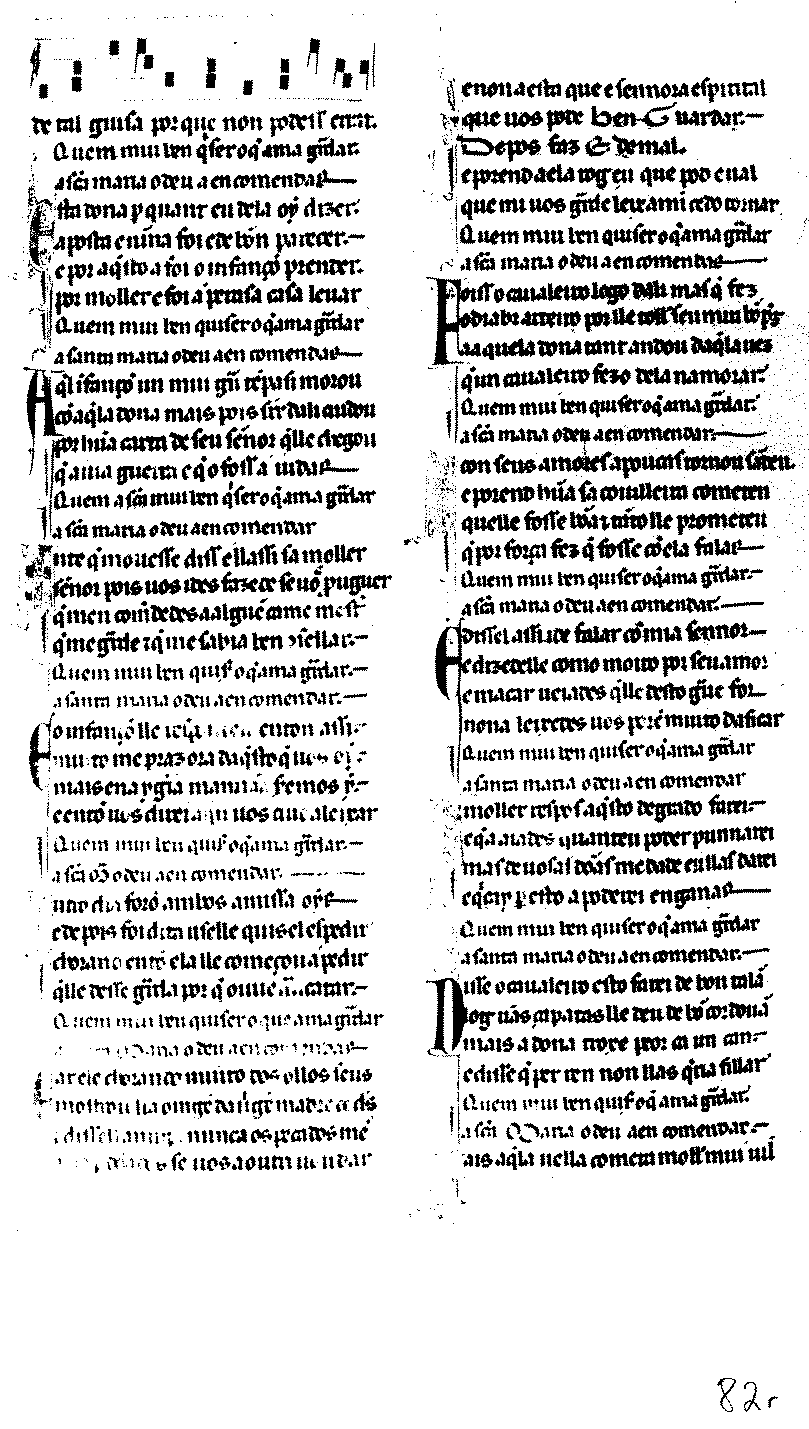 de tal guisa por que non podess errar.
Quem mui ben q̇ser o q̇ ama gũdar.
a scã maria o deu a en comendar
sta dona p quant eu dela oý dizer.
aposta e nina foi e de bõn parecer.
e por aq̇sto a foi o infançõ prender.
por moller e foi a pera sa casa leuar
Quem mui ben quiser o q̇ ama gũdar
a santa maria o deu a en comendar
A q̇l ifançõ un mui grã tẽp assi morou
cõ aq̇la dona mais pois sir dali cuidou
por hũa carta de seu señor q̇lle chegou
q̇ auia guerra e q̇ o foss a iudar
Quem a scã mui ben q̇ser o q̇ ama gũdar
a scã maria o deu a en comendar
nte q̇ mouesse diss ell assi sa moller
señor pois uos ides fazede se uos prouguer
q̇ m en comẽdedes a alguẽ
q̇ me gũde e q̇ me sabia ben cõsellar.
Quem mui ben quis o q̇ ama gũdar.
a santa maria o deu a en comendar.
E o infançõ lle enton assi
muito me praz ora daq̇sto q̇ uos
mais ena ygia mannãa seremos ý.
e entõ uos direi a quen uos cuid a leixar
Quem mui ben quis o q̇ ama gũdar.
a scã o deu a en comendar.
utro dia forõ ambos a missa oyr
e depois foi dita u selle quis el espedir
chorand entõ ela lle começou a pedir
q̇lle desse gũda por q̇ ouuess a catar.
Quem mui ben quiser o que ama gũdar
Maria o deu a en comendar
ar ele chorando muito dos ollos seus
mostrou lla omagẽ da uirgẽ madre de ds
e disse ll amiga nunca os pecados me
se uos a outri uou dar
e non a esta que e sennora espirital
que uos pode ben Guardar.
Depos faz & de mal.
e porend a ela rog eu que pod e ual
que mi uos gũde leix a mi cedo tornar
Quem mui ben quiser o q̇ ama gũdar
a scã maria o deu a en comendar
Poiss o caualeiro logo dali mas q̇ fez
o diabr arteiro por lle toll seu mui bõ pẽz
a aquela dona tant andou daq̇la uez
q̇ un caualeiro fezo dela namorar.
Quem mui ben quiser o q̇ ama gũdar
a scã maria o deu a en comendar.
con seus amores a poucas tornou
e porend hũa sa couilleira cometeu
quelle fosse bõa e tãto lle prometeu
q̇ por força fez q̇ fosse cõ ela falar
Quem mui ben quiser o q̇ ama gũdar.
a scã maria o deu a en comendar.
E diss el assi ide falar cõ mia sennor
e dizedelle como moiro por seu amor
e macar ueiades q̇lle desto grãue for
nona leixedes uos porẽ muito daficar
Quem mui ben quiser o q̇ ama gũdar
a santa maria o deu a en comendar
moller respos aq̇sto de grado farei
e q̇ a aiades quant eu poder punnarei
mas de uosas dõas me dade e llas darei
e q̇çay per esto a poderei enganar
Quem mui ben quiser o q̇ ama gũdar
a santa maria o deu a en comendar.
Disse o caualeiro esto farei de bon talã
log uãs çapatas lle deu de bõ cordouã
mais a dona trouxe peor ca un can
e disse q̇ per ren non llas q̇ria fillar
Quem mui ben quis o q̇ ama gũdar.
a scã Maria o deu a en comendar.
ais aq̇la uella com era moll mui uil
82r